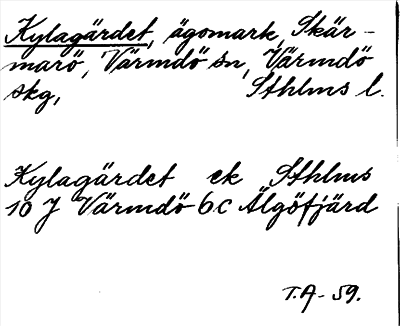 Kylagärdet, ägomark, Skär-
marö, Värmdö sn, Värmdö
skg, Sthlms l.
Kylagärdet ek Sthlms
10 J Värmdö 6c Älgöfjärd
T.A- 59.